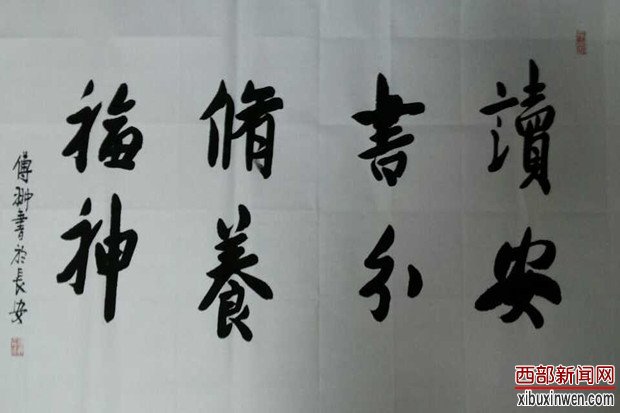 讀書脩福
安分養神
傅翀書於長安
西部新闻网
xibuxinwen.com